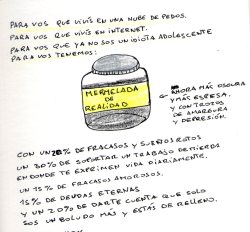 PARA VOS QUE VIVÍS EN UNA NUBE DE PEDOS.
PARA VOS QUE VIVÍS EN INTERNET.
PARA VOS QUE YA NO SOS UN IDIOTA ADOLESCENTE
PARA VOS TENEMOS:
MERMELADA
DE
REALIDAD
AHORA MÁS OSCURA
Y MÁS ESPESA.
Y CON TROZOS
DE AMARGURA
Y DEPRESIÓN.
CON UN % DE FRACASOS Y SUEÑOS ROTOS
UN 30% DE SOPORTAR UN TRABAJO DE MIERDA
EN DONDE TE EXPRIMEN VIDA DIARIAMENTE.
UN 15% DE FRACASOS AMOROSOS.
15% DE DEUDAS ETERNAS
Y UN 20% DE DARTE CUENTA QUE SOLO
SOS UN BOLUDO MÁS Y ESTÁS DE RELLENO.